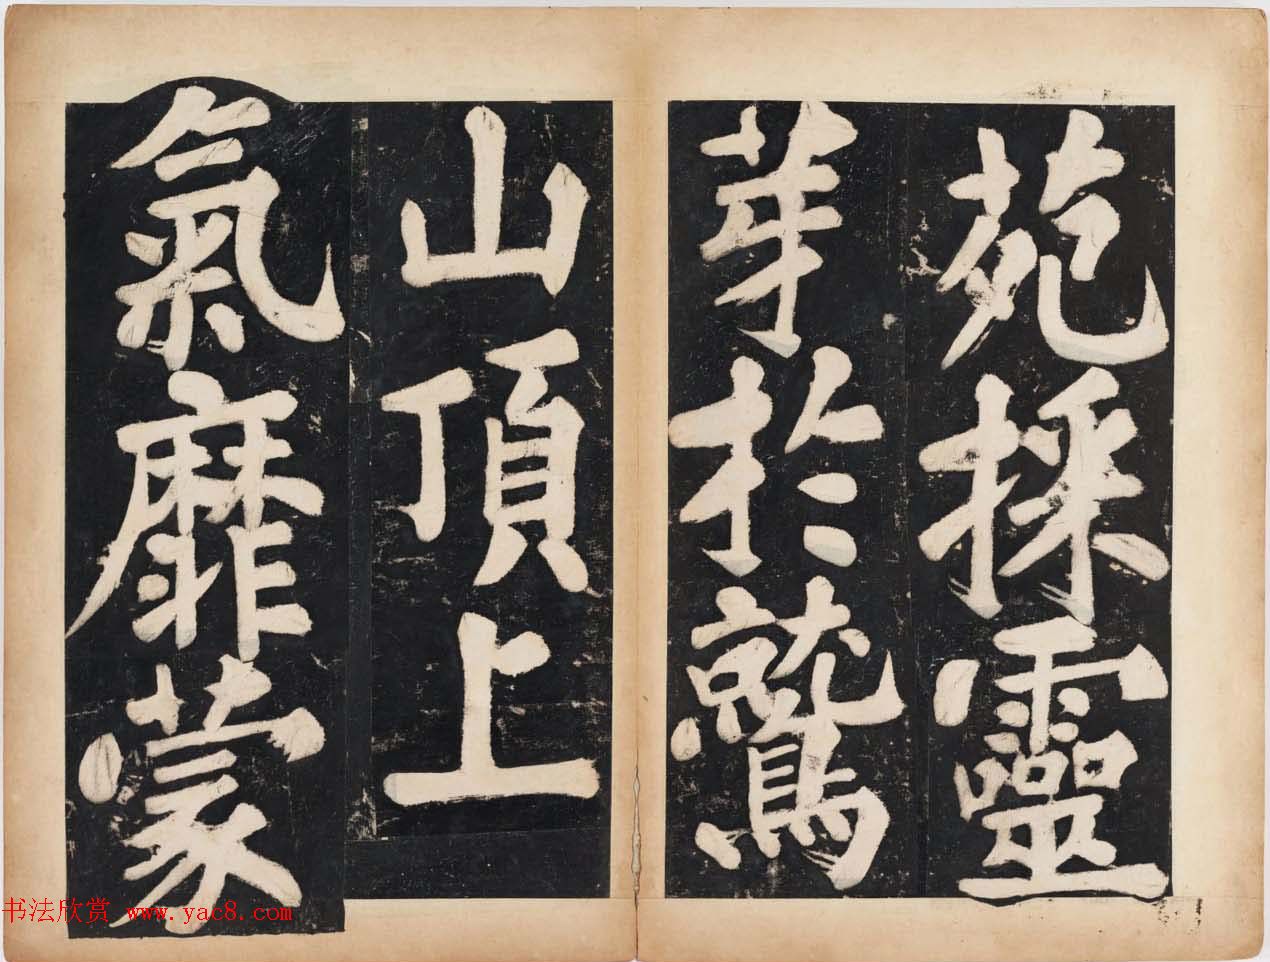 苑採靈
芽於鷲
山頂上
氣靡蒙
书法欣赏 www.yac8.com